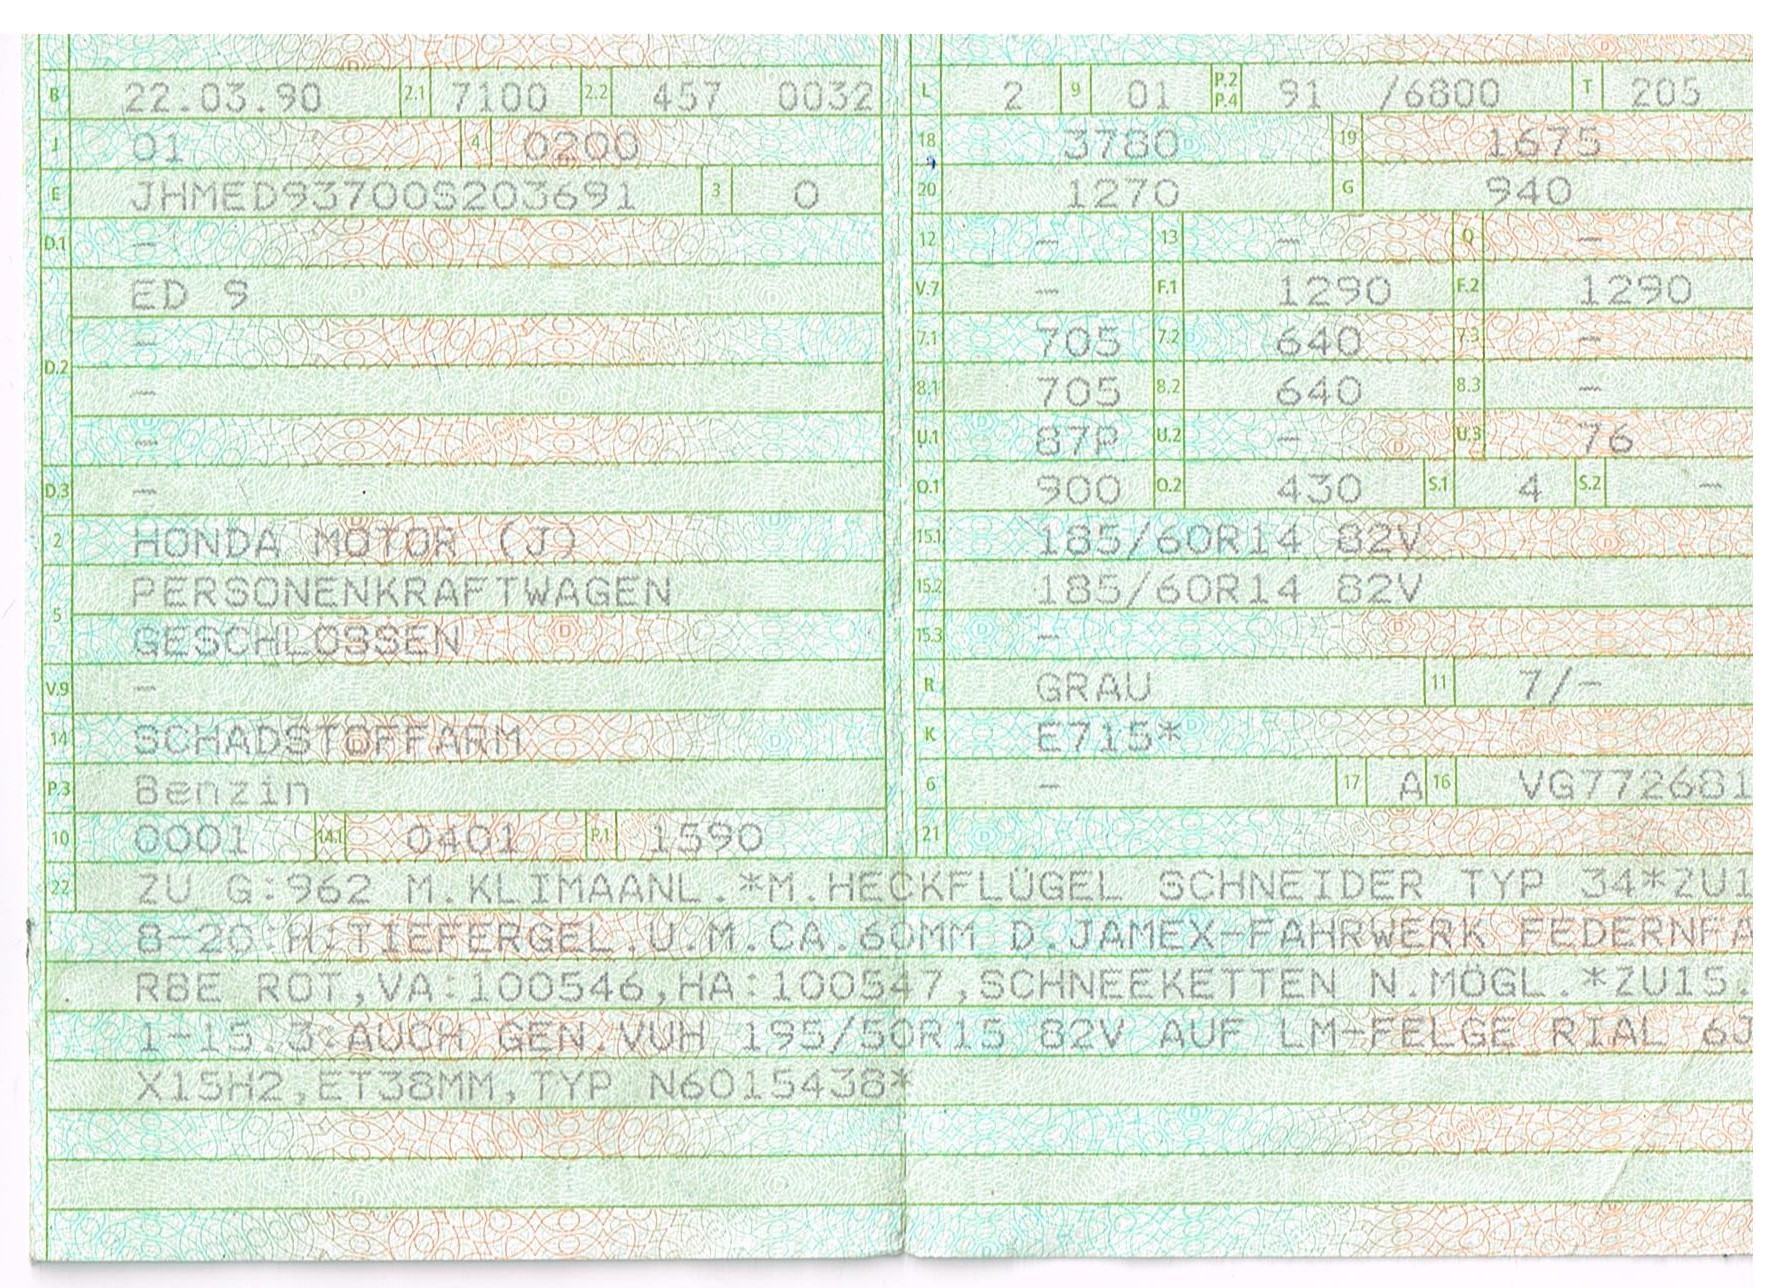 B 22.03.90 2.1 7100 2.2 457 0032
J 01 4 0200
E JHMED93700S203691 3 0
D.1 –
ED 9
–
D.2
–
–
D.3 –
2 HONDA MOTOR (J)
PERSONENKRAFTWAGEN
5
GESCHLOSSEN
V.9 –
14 SCHADSTOFFARM
P.3 Benzin
10 0001 14.1 0401 P.1 1590
L 2 9 01 P.2 P.4 91 /6800 T 205
18 3780 19 1675
20 1270 G 940
12 – 13 – Q –
V.7 – F.1 1290 F.2 1290
7.1 705 7.2 640 7.3 –
8.1 705 8.2 640 8.3 –
U.1 87P U.2 – U.3 76
O.1 900 O.2 430 S.1 4 S.2 –
15.1 185/60R14 82V
15.2 185/60R14 82V
15.3 –
R GRAU 11 7/–
K E715*
6 – 17 A 16 VG772681
21
22 ZU G:962 M.KLIMAANL.*M.HECKFLÜGEL SCHNEIDER TYP 34*ZU1
8-20:H:TIEFERGEL.U.M.CA.60MM D.JAMEX-FAHRWERK FEDERNFA
RBE ROT,VA:100546,HA:100547,SCHNEEKETTEN N.MÖGL.*ZU15.
1-15.3:AUCH GEN.VUH 195/50R15 82V AUF LM-FELGE RIAL 6J
X15H2,ET38MM,TYP N6015438*